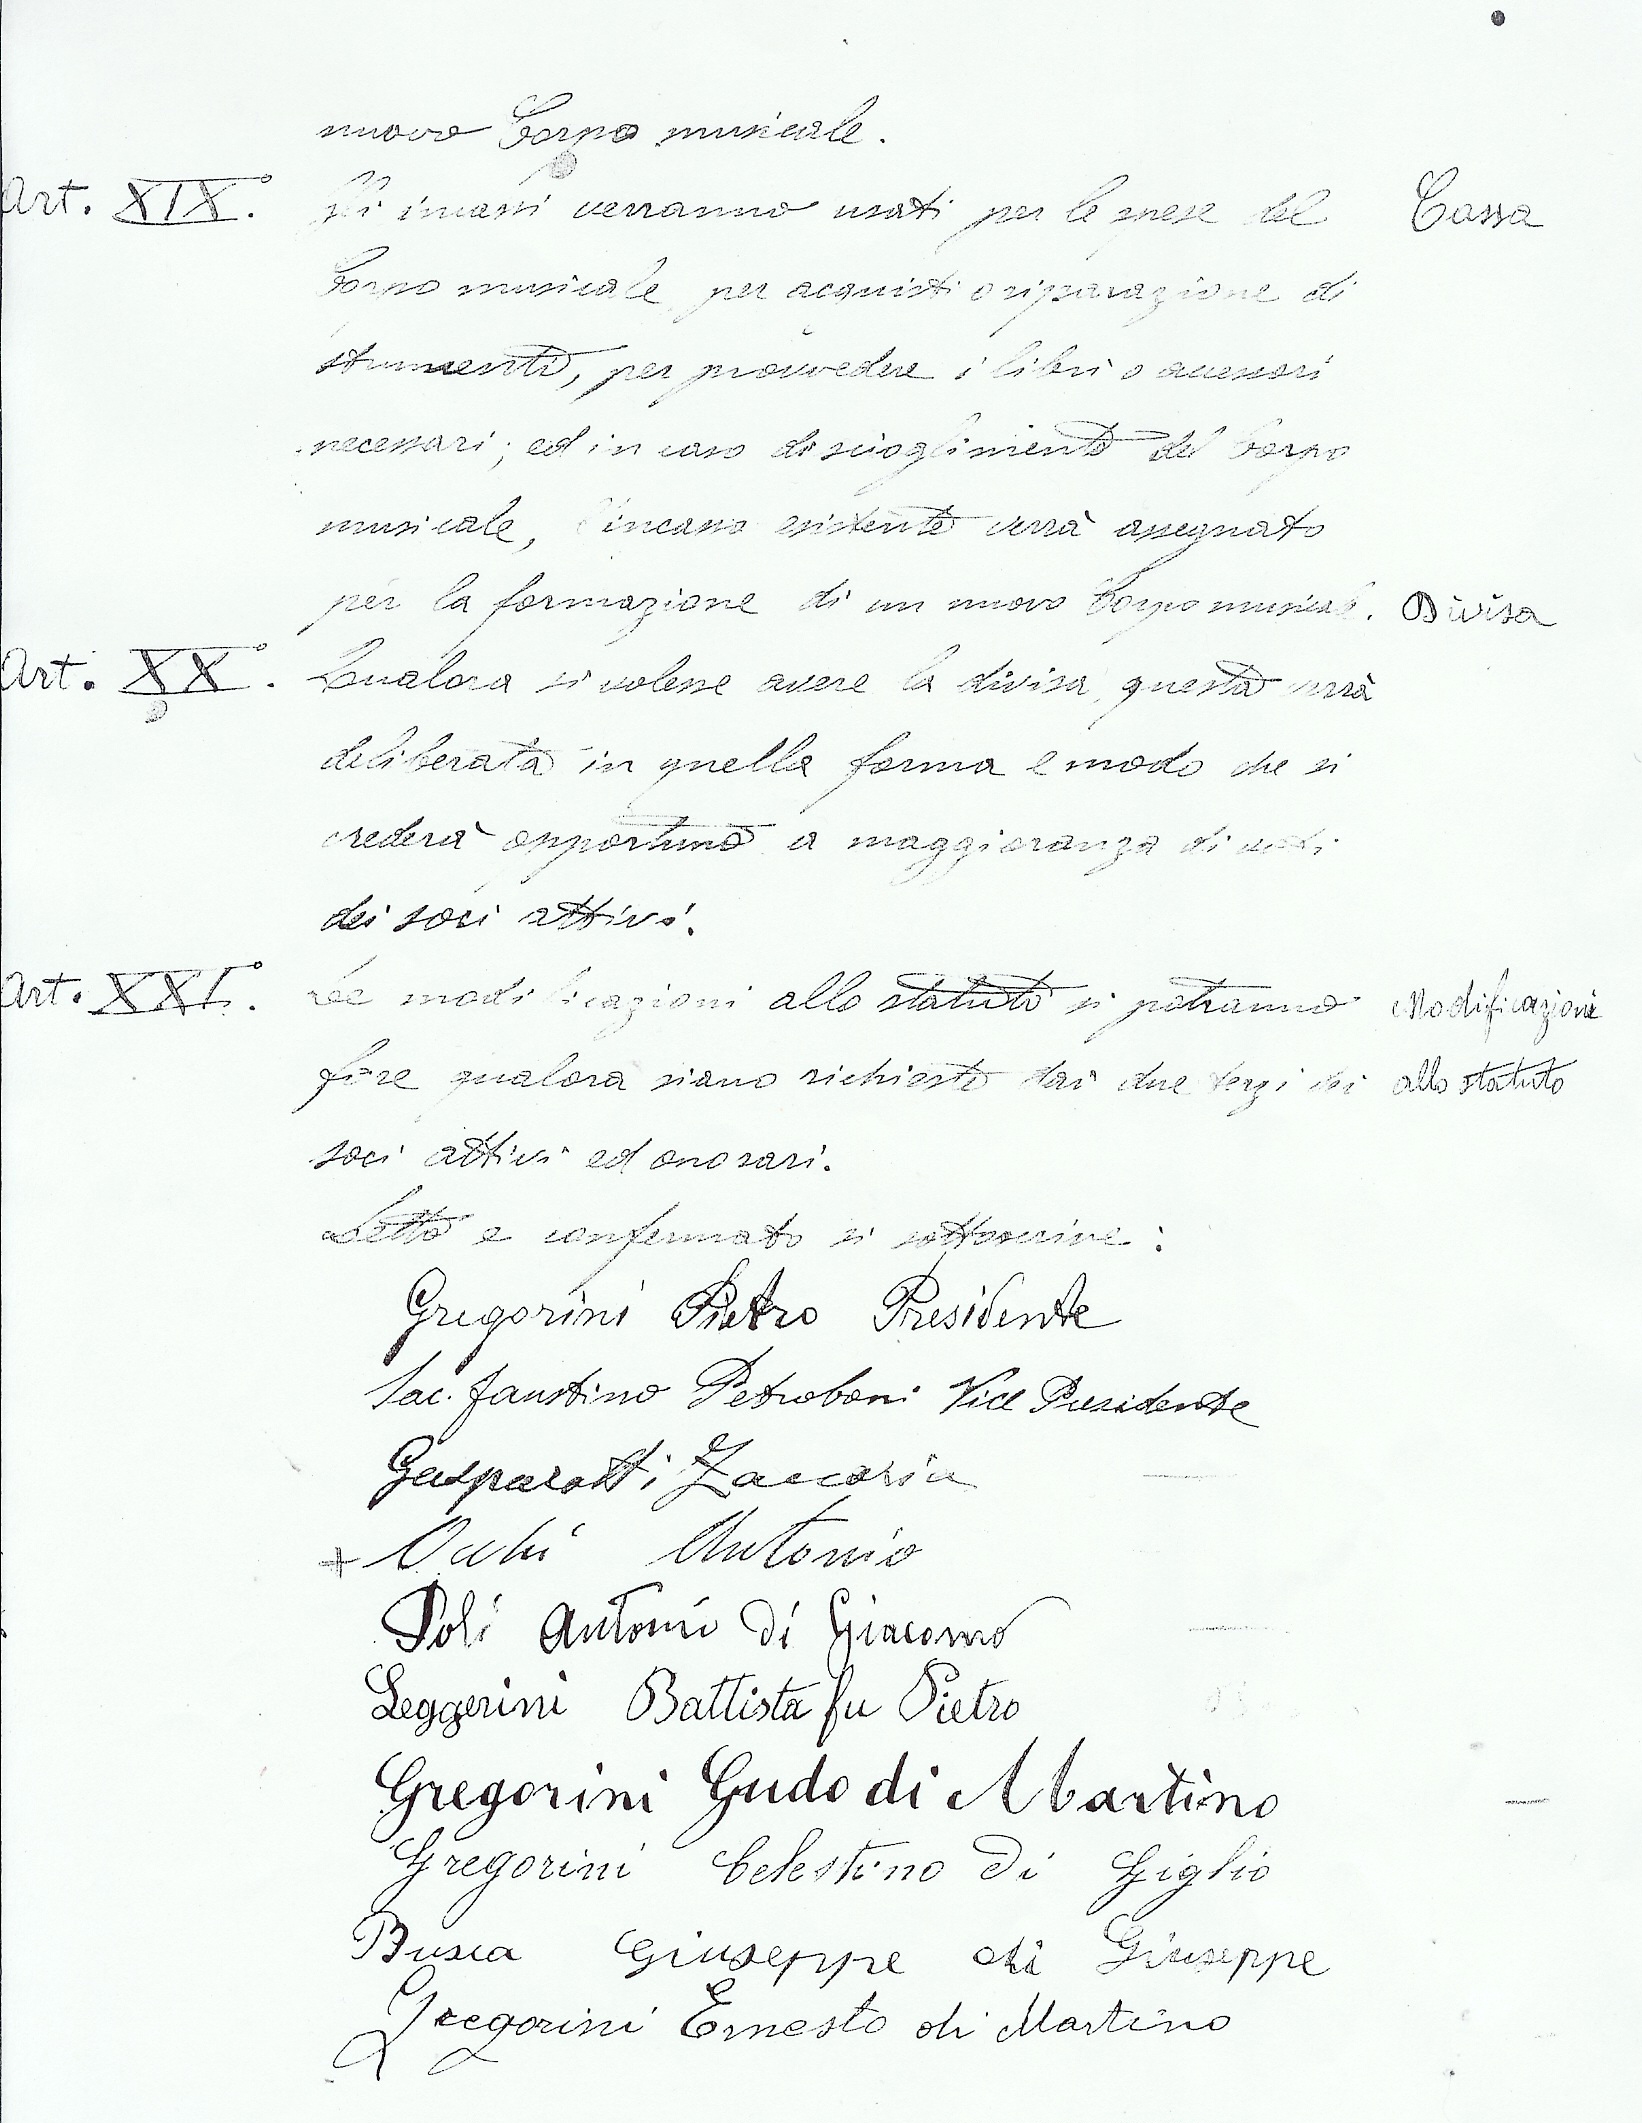 nuovo Corpo musicale.
Art. XIX.° Gli incassi verranno usati per le spese del Cassa
Corpo musicale, per acquisti o riparazione di
strumenti, per provvedere i libri o accessori
necessari; ed in caso di scioglimento del Corpo
musicale, l'incasso esistente verrà assegnato
per la formazione di un nuovo Corpo musicale. Divisa
Art. XX.° Qualora si volesse avere la divisa, questa verrà
deliberata in quella forma e modo che si
crederà opportuno a maggioranza di voti
dei soci attivi.
Art. XXI.° Le modificazioni allo statuto si potranno Modificazioni
fare qualora siano richieste dai due terzi dei allo statuto
soci attivi ed onorari.
Letto e confermato si sottoscrive:
Gregorini Pietro Presidente
Sac. Faustino Petroboni Vice Presidente
Gasparotti Zaccaria
+ Occhi Antonio
Poli Antoni di Giacomo
Leggerini Battista fu Pietro
Gregorini Gudo di Martino
Gregorini Celestino di Giglio
Busca Giuseppe di Giuseppe
Gregorini Ernesto di Martino